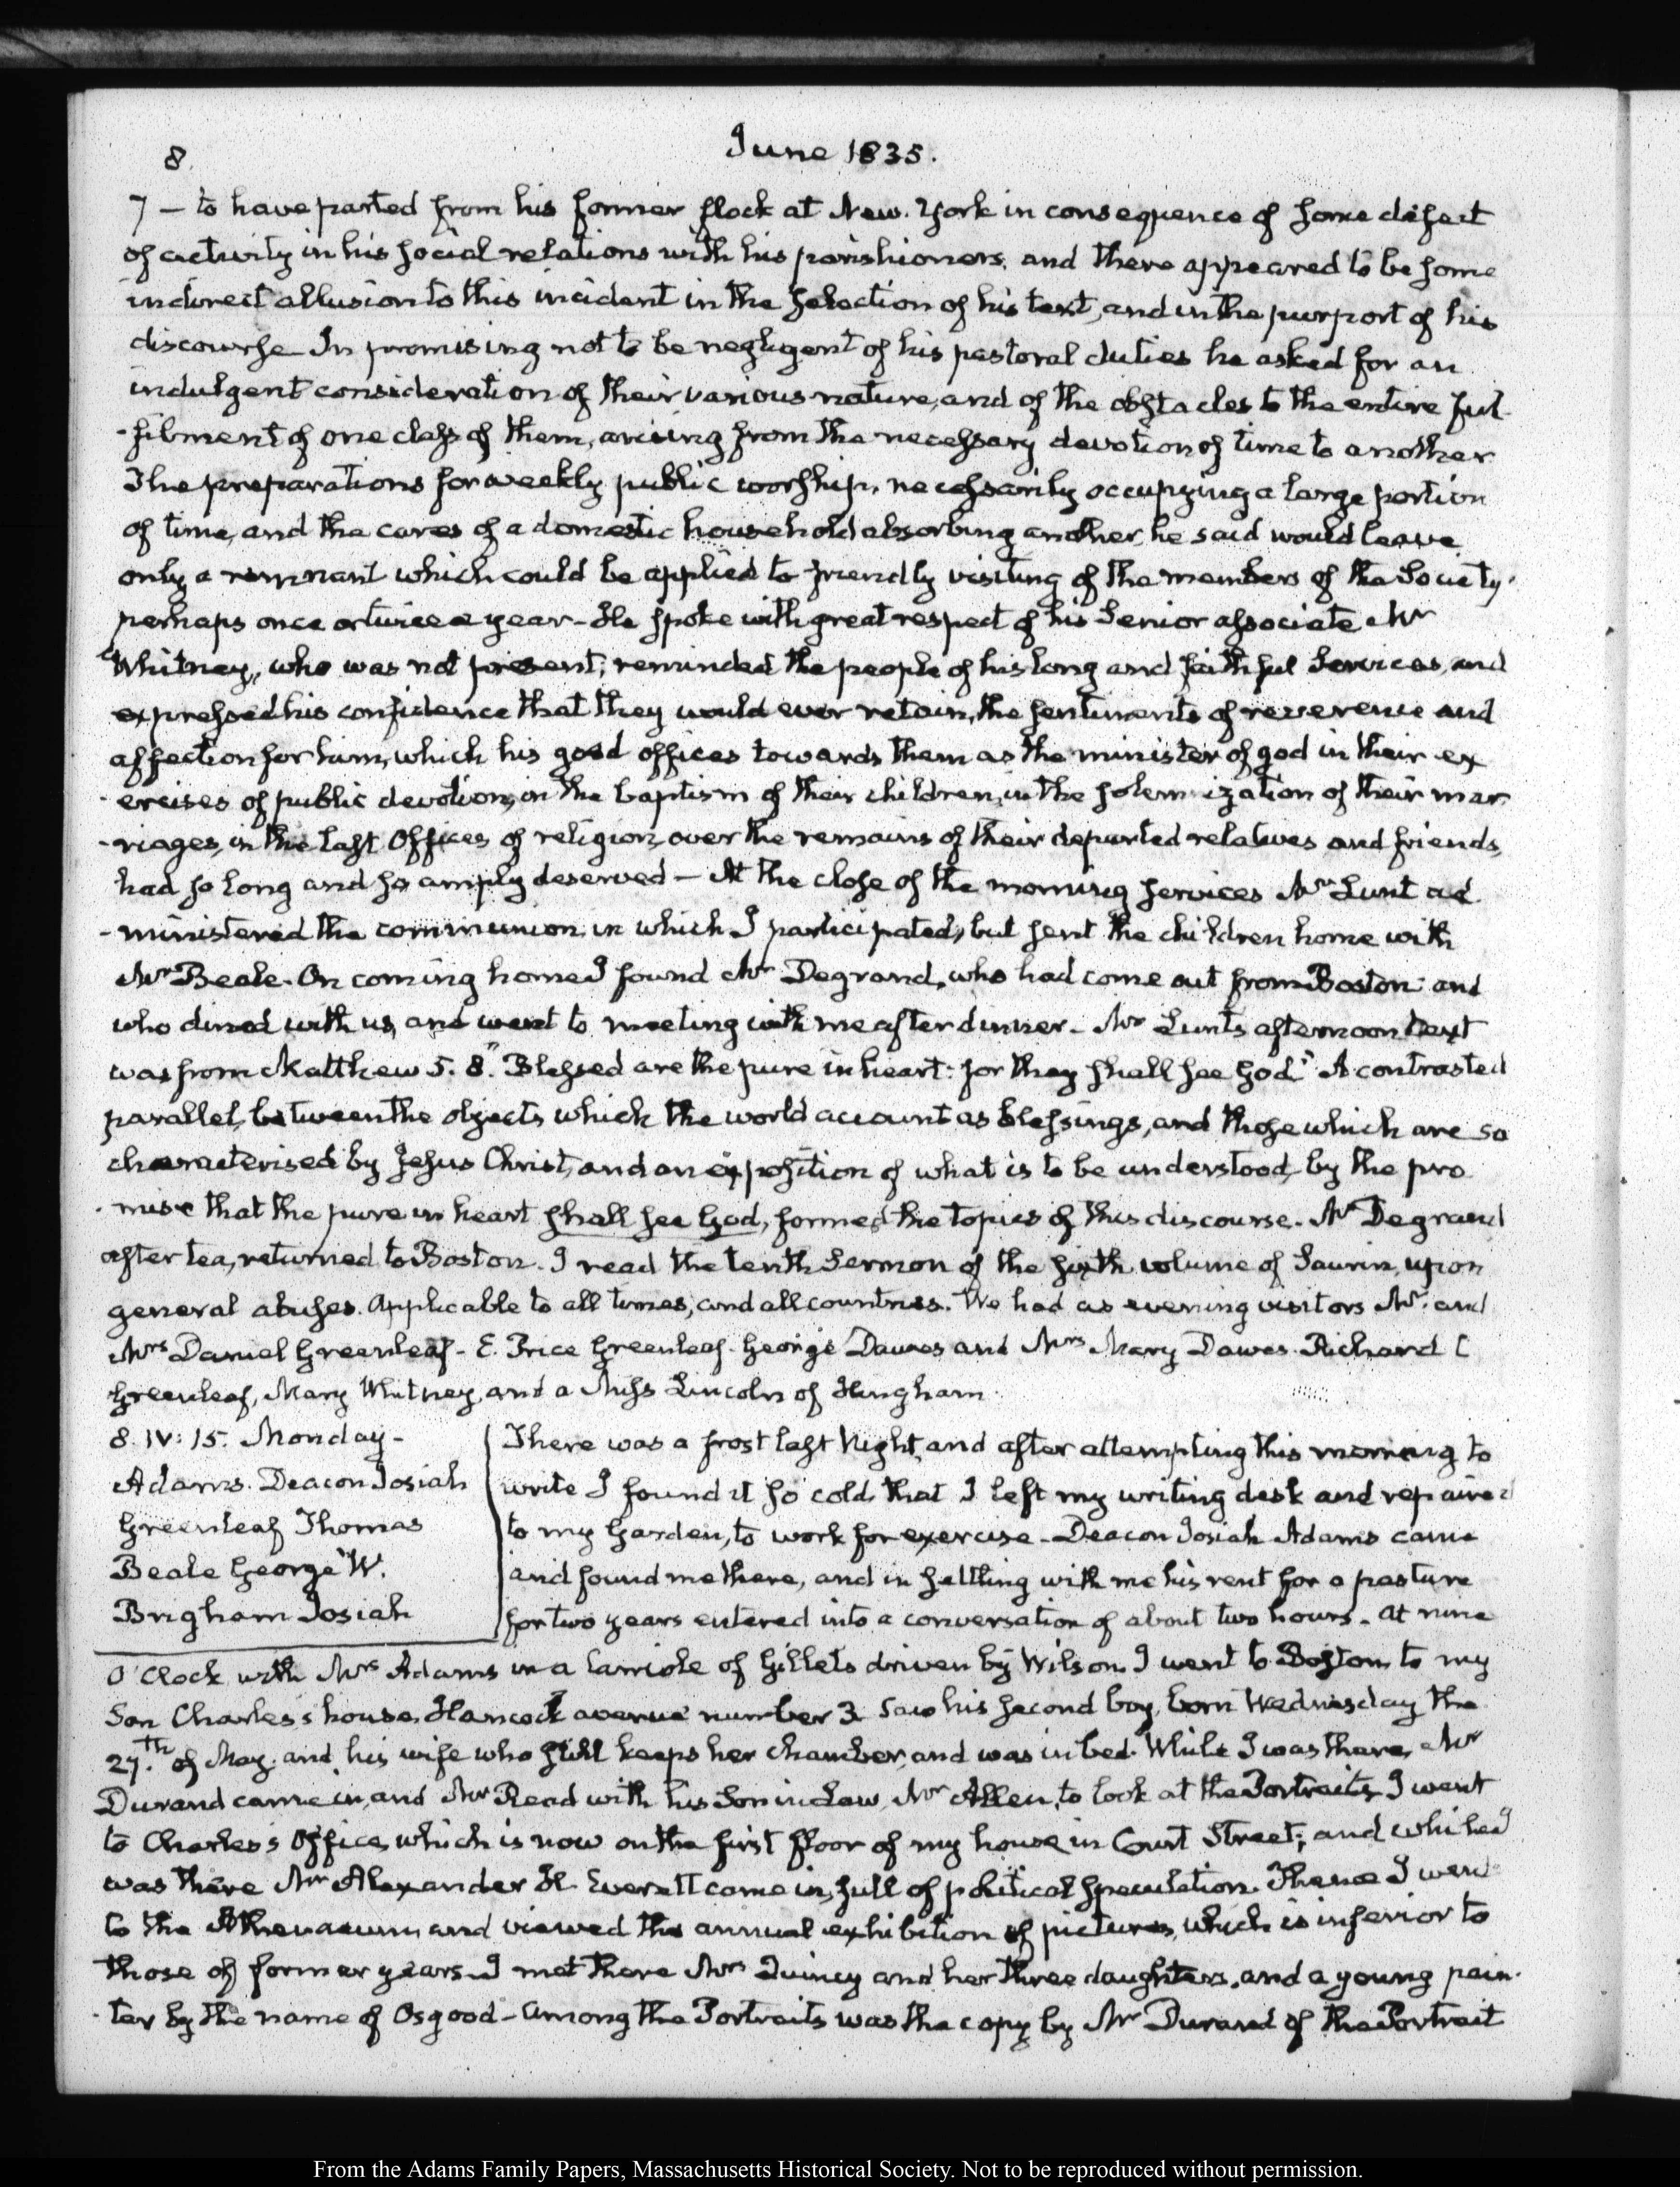 8.
June 1835.
7 — to have parted from his former flock at New-York in consequence of some defect
of activity in his social relations with his parishioners. and there appeared to be some
indirect allusion to this incident in the selection of his text, and in the purport of his
discourse — In promising not to be negligent of his pastoral duties he asked for an
indulgent consideration of their various nature, and of the obstacles to the entire ful-
-filment of one class of them, arising from the necessary devotion of time to another
The preparations for weekly public worship, necessarily occupying a large portion
of time, and the cares of a domestic household absorbing another, he said would leave
only a remnant which could be applied to friendly visiting of the members of the Society.
perhaps once or twice a year — He spoke with great respect of his Senior associate Mr
Whitney, who was not present; reminded the people of his long and faithful Services, and
expressed his confidence that they would ever retain, the sentiments of reverence and
affection for him, which his good offices towards them as the minister of god in their ex
-ercises of public devotion, in the baptism of their children, in the solemnization of their mar
-riages, in the last Offices of religion, over the remains of their departed relatives and friends,
had so long and so amply deserved — At the close of the morning services Mr Lunt ad
-ministered the communion in which I participated, but sent the children home with
Mr Beale. On coming home I found Mr Degrand, who had come out from Boston and
who dined with us, and went to meeting with me after dinner — Mr Lunt's afternoon text
was from Matthew 5. 8. "Blessed are the pure in heart: for they shall see God." A contrasted
parallel, between the objects which the world account as blessings, and those which are so
characterised by Jesus Christ, and an exposition of what is to be understood by the pro
-mise that the pure in heart shall see God, formed the topics of this discourse. Mr Degrand
after tea, returned to Boston. I read the tenth Sermon of the sixth volume of Saurin, upon
general abuses. Applicable to all times, and all countries. We had as evening visitors Mr. and
Mrs Daniel Greenleaf — E. Price Greenleaf. George Dawes and Mrs Mary Dawes. Richard C
Greenleaf, Mary Whitney, and a Miss Lincoln of Hingham
8. IV: 15. Monday —
Adams. Deacon Josiah
Greenleaf Thomas
Beale George W.
Brigham Josiah
There was a frost last Night, and after attempting this morning to
write I found it so cold that I left my writing desk and repaired
to my Garden, to work for exercise — Deacon Josiah Adams came
and found me there, and in settling with me his rent for a pasture
for two years entered into a conversation of about two hours. At nine
O'Clock with Mrs Adams in a carriole of Gillet's driven by Wilson I went to Boston to my
Son Charles's house, Hancock avenue number 3 saw his second boy, born Wednesday the
27.th of May. and his wife who still keeps her chamber, and was in bed. While I was there, Mr
Durand came in, and Mr Read with his Son in Law, Mr Allen, to look at the Portraits, I went
to Charles's Office, which is now on the first floor of my house in Court Street; and while I
was there Mr Alexander H. Everett came in, full of political speculation. Thence I went
to the Athenaeum, and viewed the annual exhibition of pictures, which is inferior to
those of former years. I met there Mrs Quincy and her three daughters, and a young pain-
-ter by the name of Osgood — Among the Portraits was the copy by Mr Durand of the Portrait
From the Adams Family Papers, Massachusetts Historical Society. Not to be reproduced without permission.